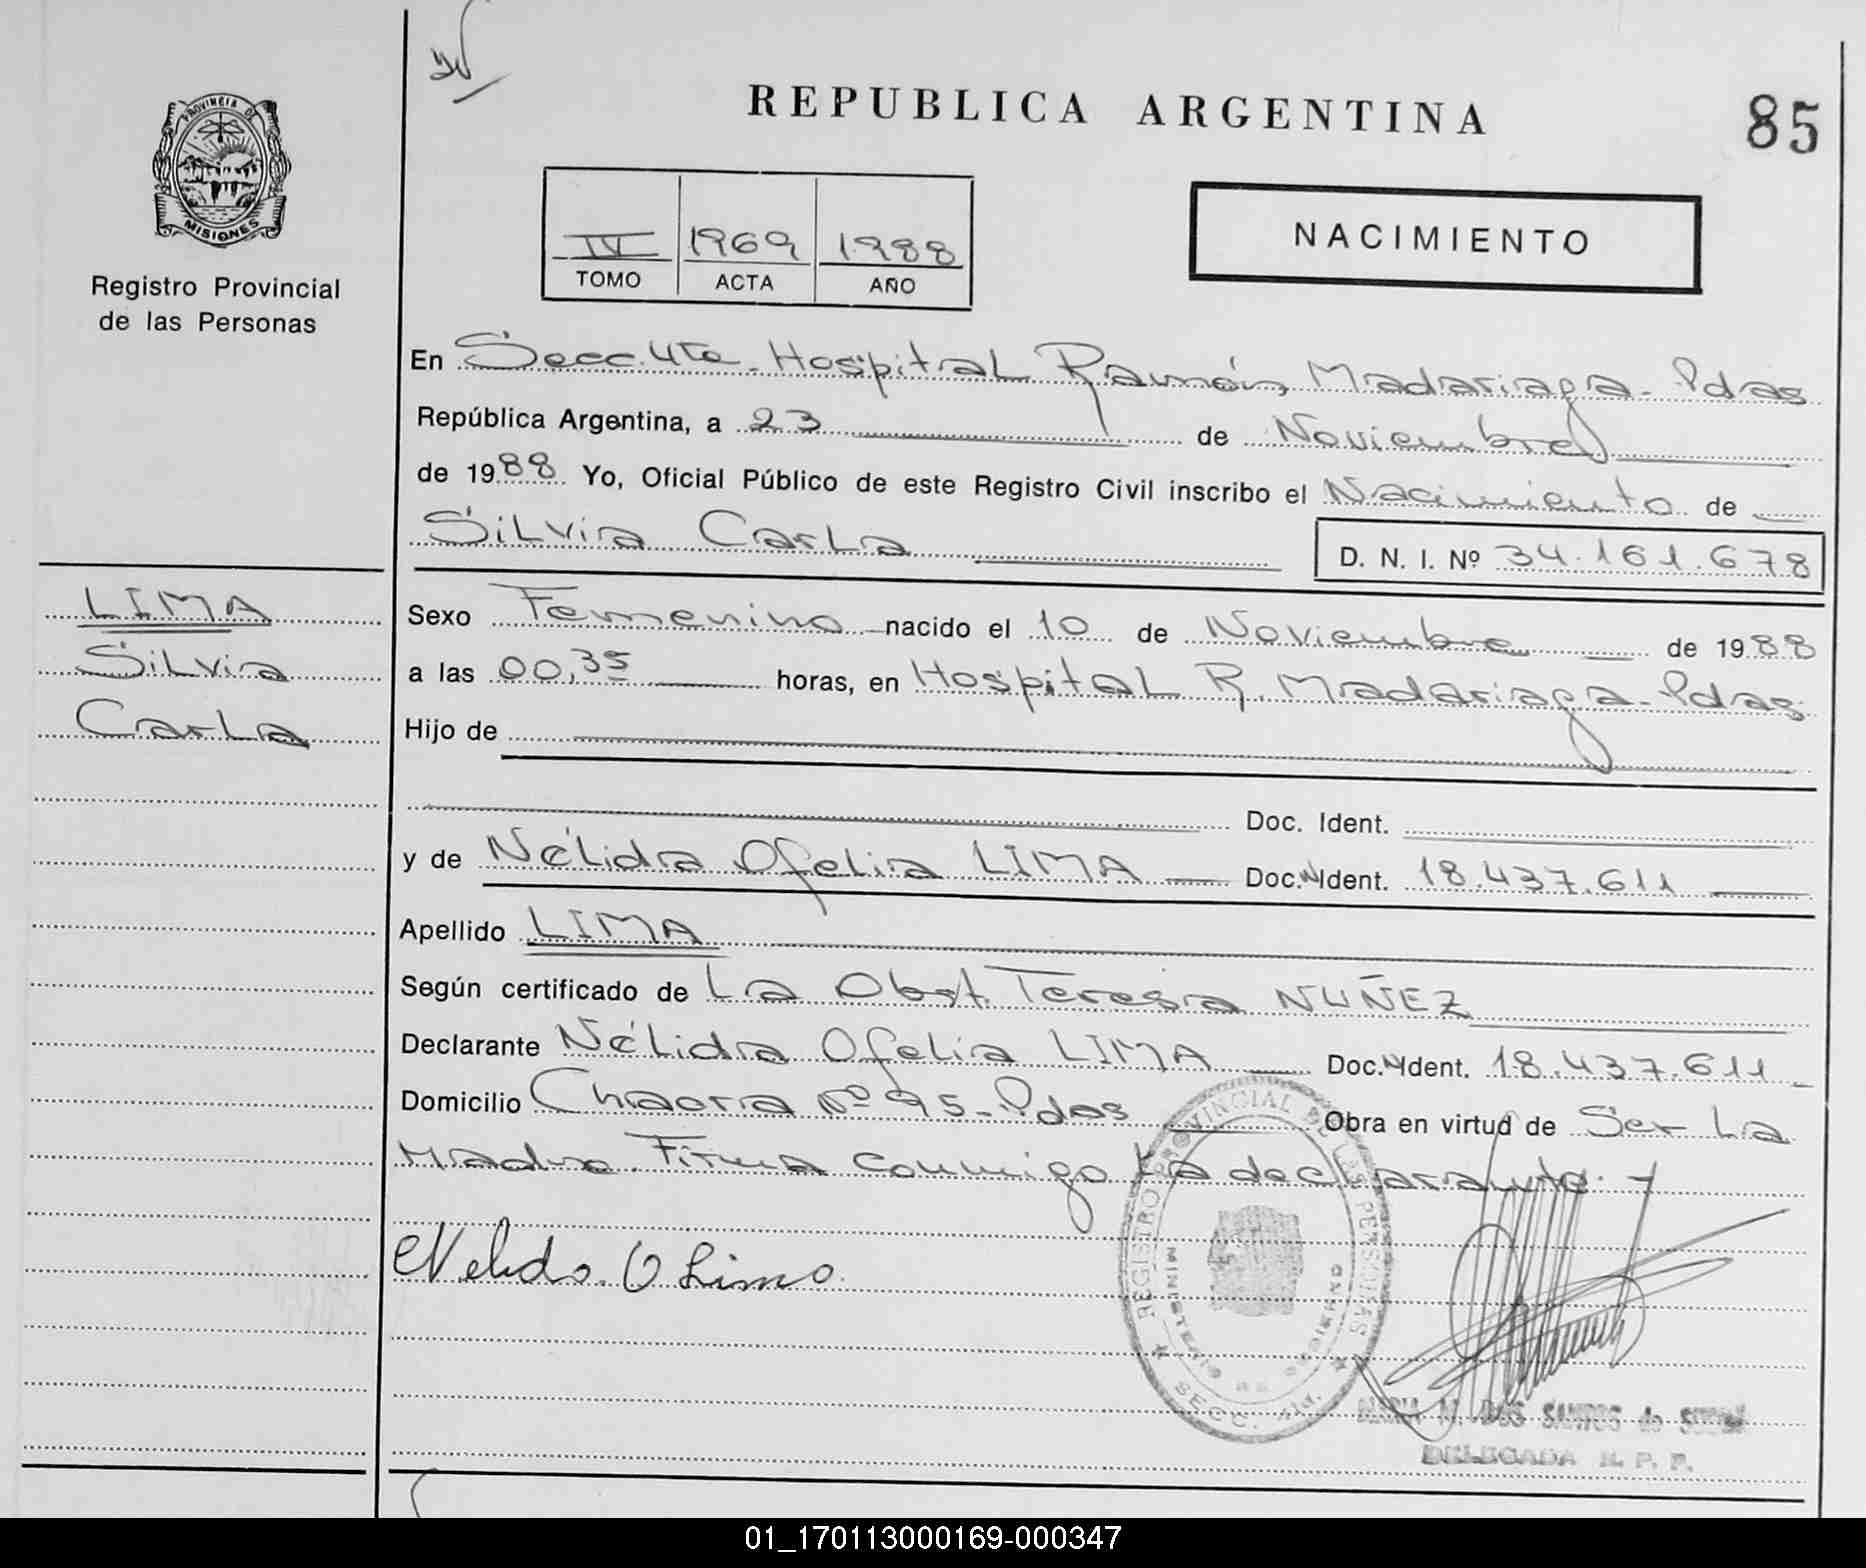 REPUBLICA ARGENTINA
85
PROVINCIA DE
MISIONES
Registro Provincial
de las Personas
IV 1969 1988
TOMO ACTA AÑO
NACIMIENTO
En Secc. 4ta. Hospital Ramón Madariaga - Pdas
República Argentina, a 23 de Noviembre
de 1988 Yo, Oficial Público de este Registro Civil inscribo el Nacimiento de
Silvia Carla
D. N. I. Nº 34.161.678
LIMA
Silvia
Carla
Sexo Femenino nacido el 10 de Noviembre de 1988
a las 00,35 horas, en Hospital R. Madariaga - Pdas
Hijo de
Doc. Ident.
y de Nélida Ofelia LIMA Doc. N Ident. 18.437.611
Apellido LIMA
Según certificado de La Obst. Teresa NUÑEZ
Declarante Nélida Ofelia LIMA Doc. N Ident. 18.437.611
Domicilio Nº 95 - Pdas Obra en virtud de Ser La
Madre. Firma conmigo La declarante. -
Nelida O Lima
REGISTRO PROVINCIAL DE LAS PERSONAS
MINISTERIO DE GOBIERNO
SECC. 4ta.
DOS SANTOS de
DELEGADA R. P. P.
01_170113000169-000347